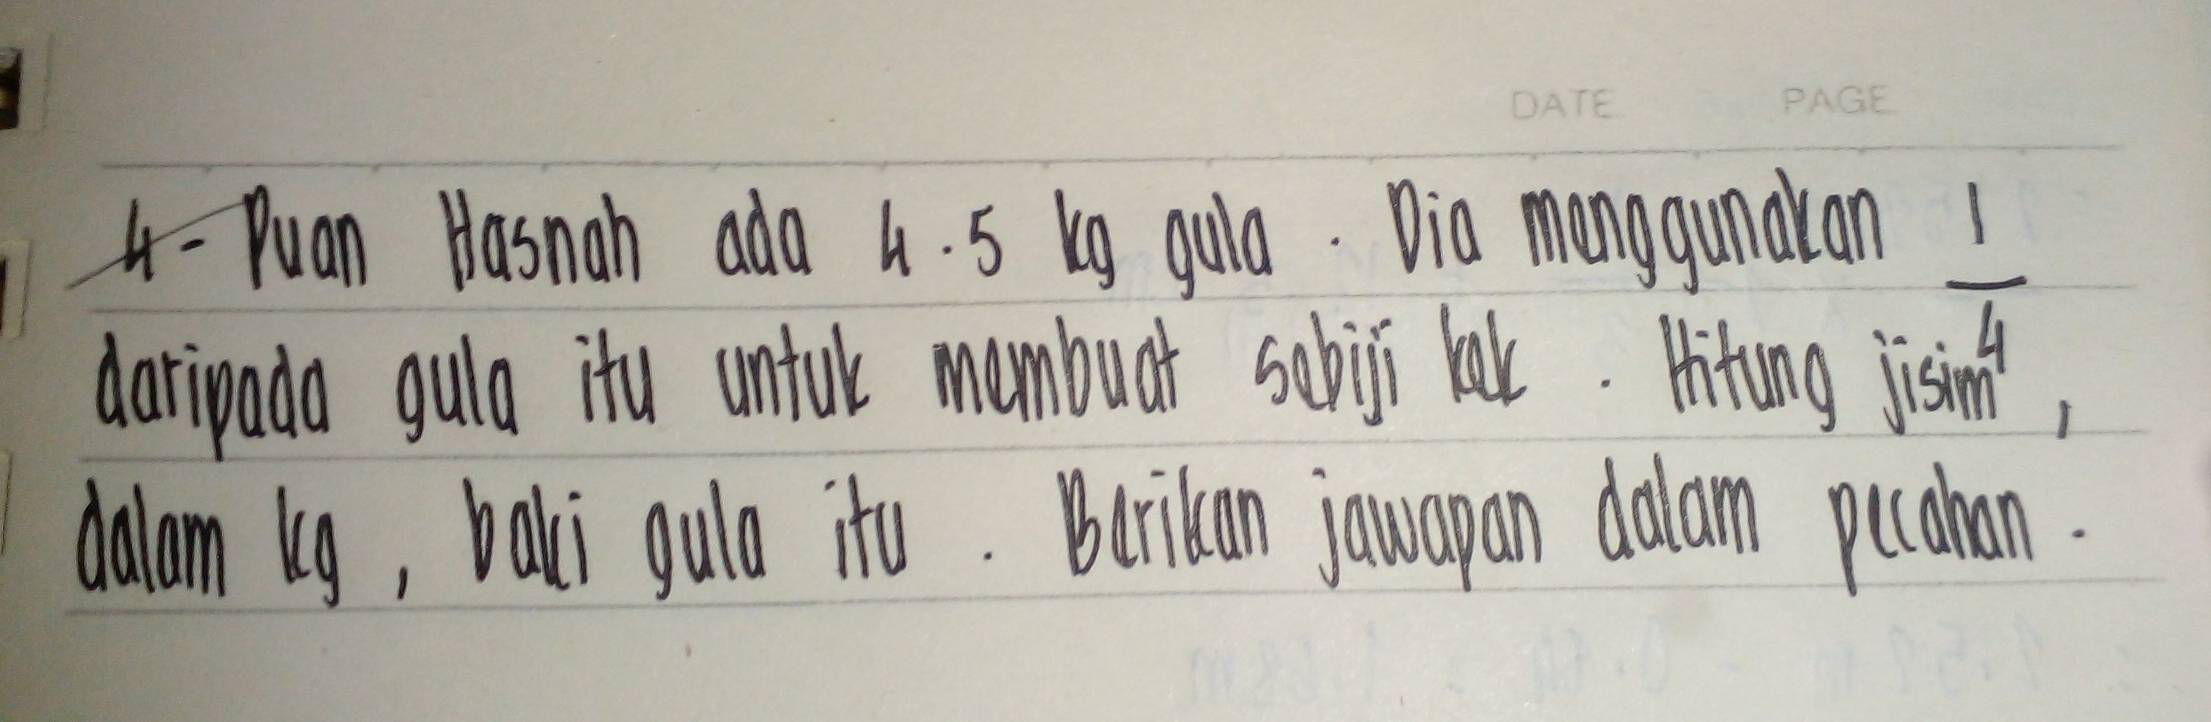 DATE PAGE
4- Puan Hasnah ada 4.5 kg gula. Dia menggunakan 1/4
daripada gula itu untuk membuat sebiji kek. Hitung jisim,
dalam kg, baki gula itu. Berikan jawapan dalam pecahan.